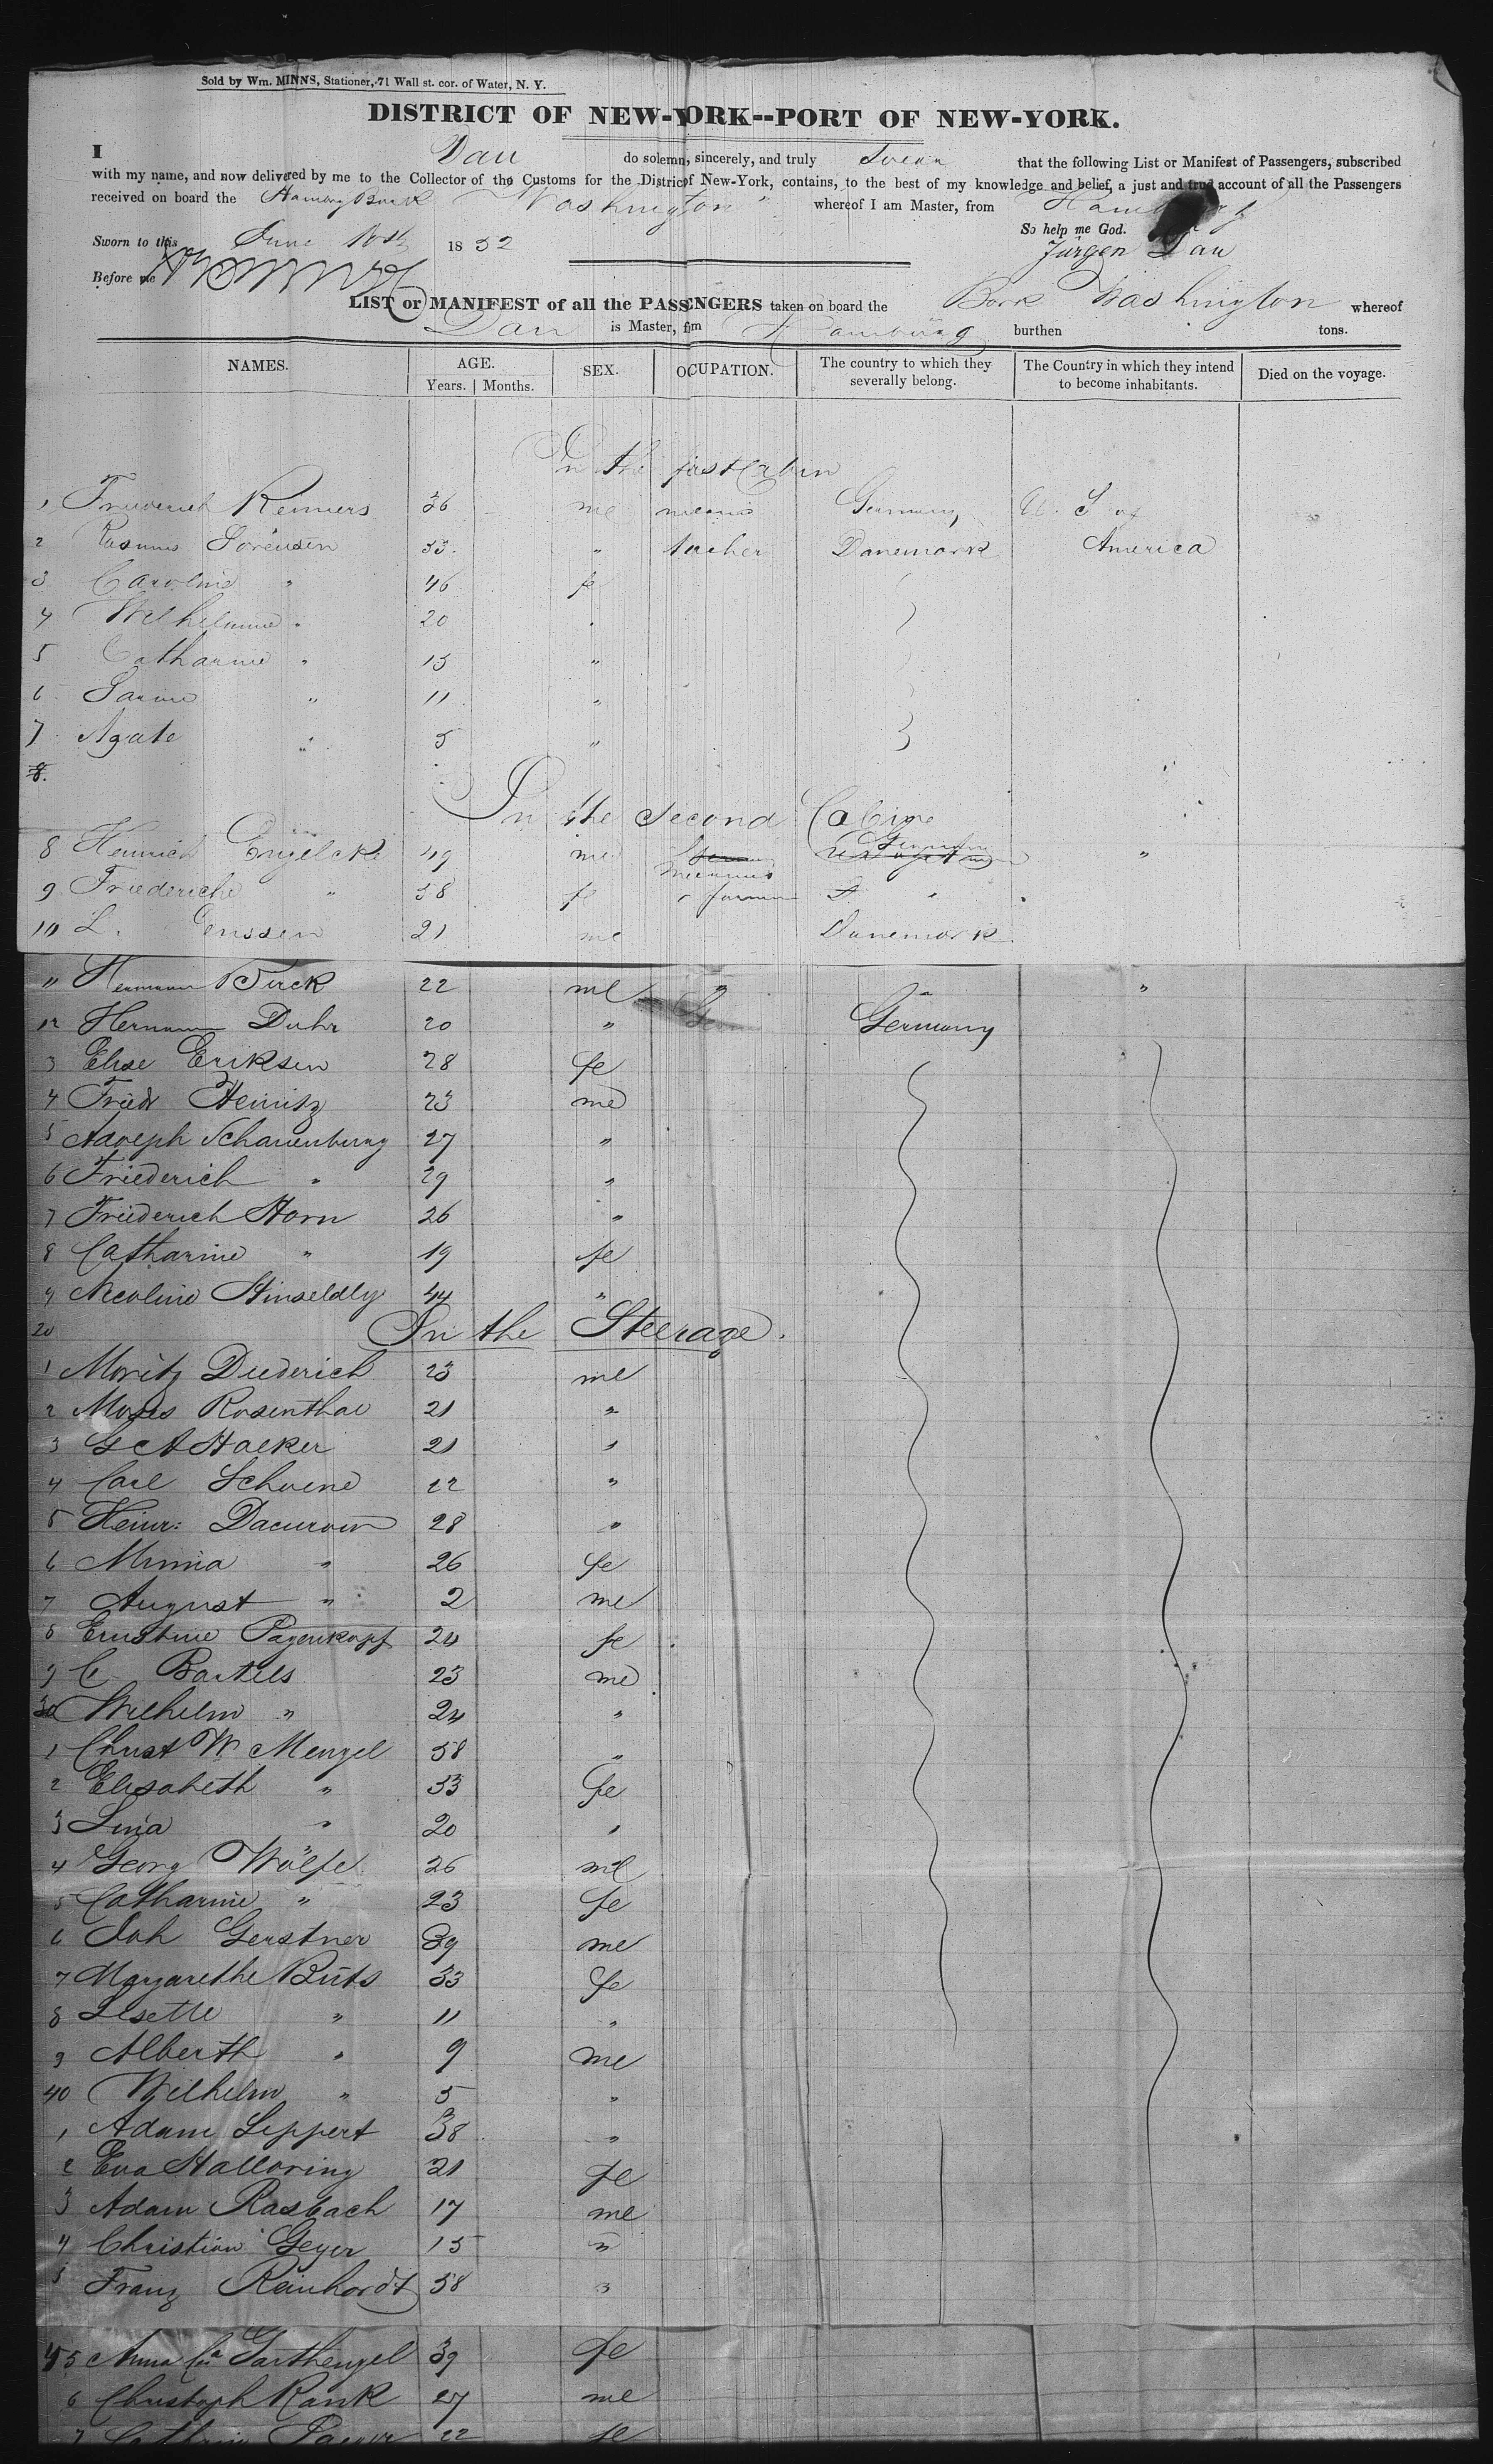 Sold by Wm. MINNS, Stationer, 71 Wall st. cor. of Water, N. Y.
DISTRICT OF NEW-YORK--PORT OF NEW-YORK.
I Dau do solemn, sincerely, and truly Swear that the following List or Manifest of Passengers, subscribed
with my name, and now delivered by me to the Collector of the Customs for the District of New-York, contains, to the best of my knowledge and belief, a just and true account of all the Passengers
received on board the Hamburg Bark Washington whereof I am Master, from Hamburg
Sworn to this June 1852 So help me God.
Jürgen Dau
Before me
LIST or MANIFEST of all the PASSENGERS taken on board the Bark Washington whereof
Dau is Master, from Hamburg burthen tons.
NAMES. AGE. Years. Months. SEX. OCUPATION. The country to which they severally belong. The Country in which they intend to become inhabitants. Died on the voyage.
In the first Cabin
1 Friederich Reimers 36 me Germany U. S of
2 Rasmus Sörensen 53. " teacher Danemark America
3 Caroline " 46 fe
4 Wilhelmine " 20 "
5 Catharine " 15 "
6 " 11 "
7 Agate " 5 "
8.
In the Second Cabine
8 Heinrich Engelcke 49 me Germany "
9 Friederiche " 58 fe "
10 L. Genssen 21 me Danemark
11 Hermann Birck 22 me " " "
12 Hermann Duhr 20 " Germany
3 Elise Eriksen 28 fe
4 Friedr Heinitz 23 me
5 Adolph Schauenburg 27 "
6 Friederich " 29 "
7 Friederich Horn 26 "
8 Catharine " 19 fe
9 Nicoline 44 "
20 In the Steerage.
1 Moritz Diederich 23 me
2 Moses Rosenthal 21 "
3 G A Halker 21 "
4 Carl Schoene 22 "
5 Heinr: 28 "
6 Minna " 26 fe
7 August " 2 me
8 Ernstine Pagenkopf 24 fe
9 C Bartels 23 me
30 Wilhelm " 24 "
1 Christ W Mengel 58 "
2 Elisabeth " 53 fe
3 Lina " 20 "
4 Georg Wölfel 26 me
5 Catharine " 23 fe
6 Joh Gerstner 39 me
7 Margarethe Büts 33 fe
8 Lisette " 11 "
9 Alberth " 9 me
40 Wilhelm " 5 "
1 Adam Leppert 38 "
2 Eva Halloring 21 fe
3 Adam Rasbach 17 me
4 Christian Geyer 15 "
5 Franz Reinhardt 58 "
45 Anna Garthengel 39 fe
6 Christoph Rank 27 me
7 22 fe